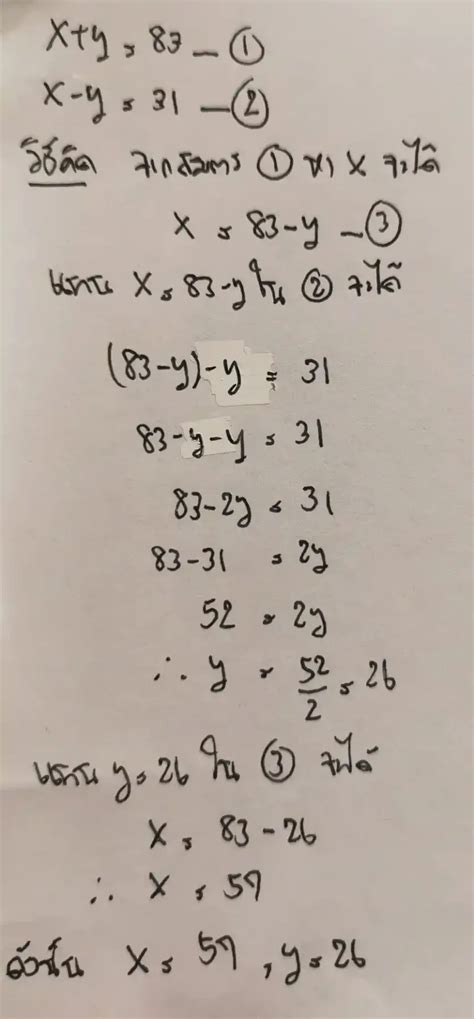 x+y = 83 — ①
x-y = 31 — ②
วิธีคิด จากสมการ ① หา x จะได้
x = 83-y — ③
แทน x = 83-y ใน ② จะได้
(83-y)-y = 31
83-y-y = 31
83-2y = 31
83-31 = 2y
52 = 2y
∴ y = 52/2 = 26
แทน y = 26 ใน ③ จะได้
x = 83-26
∴ x = 57
ดังนั้น x = 57 , y = 26